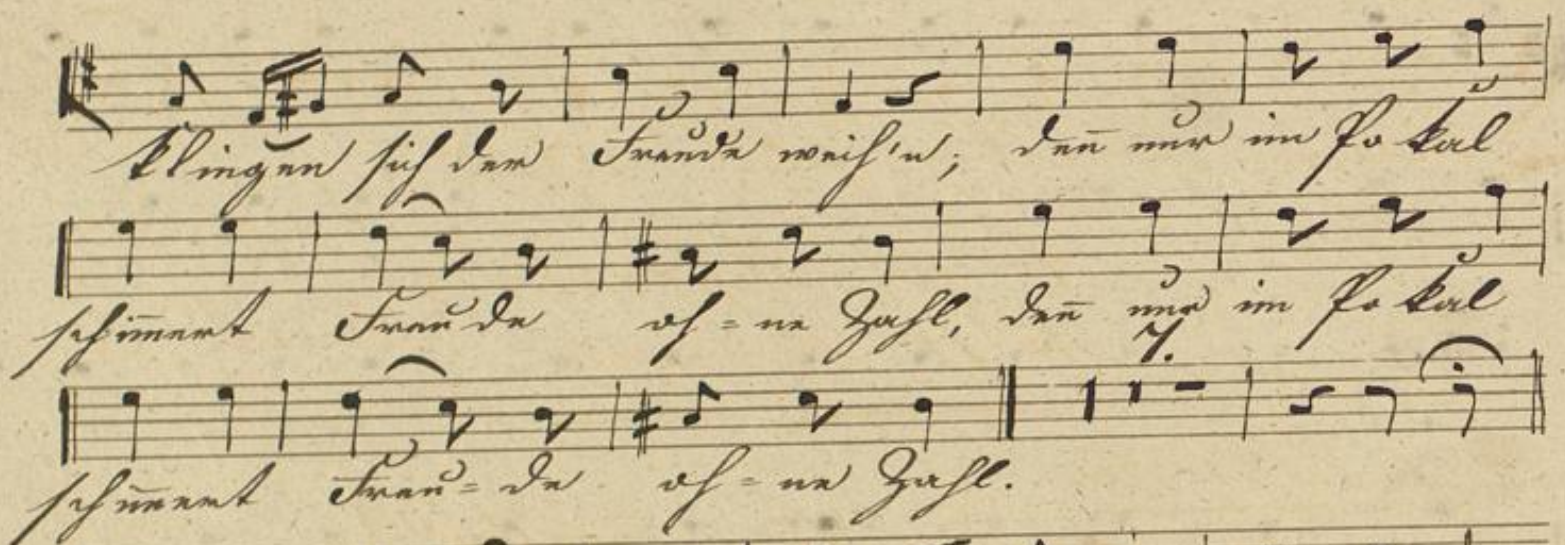 klingen sich der Freude weih'n; den̄ nur im Pokal
schim̄ert Freude oh=ne Zahl, den̄ nur im Pokal
7.
schim̄ert Freu=de oh=ne Zahl.